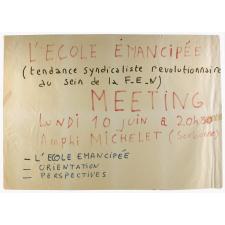 L'ECOLE ÉMANCIPÉE
(tendance syndicaliste revolutionnaire
au sein de la F.E.N)
MEETING
LUNDI 10 JUIN à 20h30
Amphi MICHELET (Sorbonne)
- L'ECOLE EMANCIPÉE
- ORIENTATION
- PERSPECTIVES